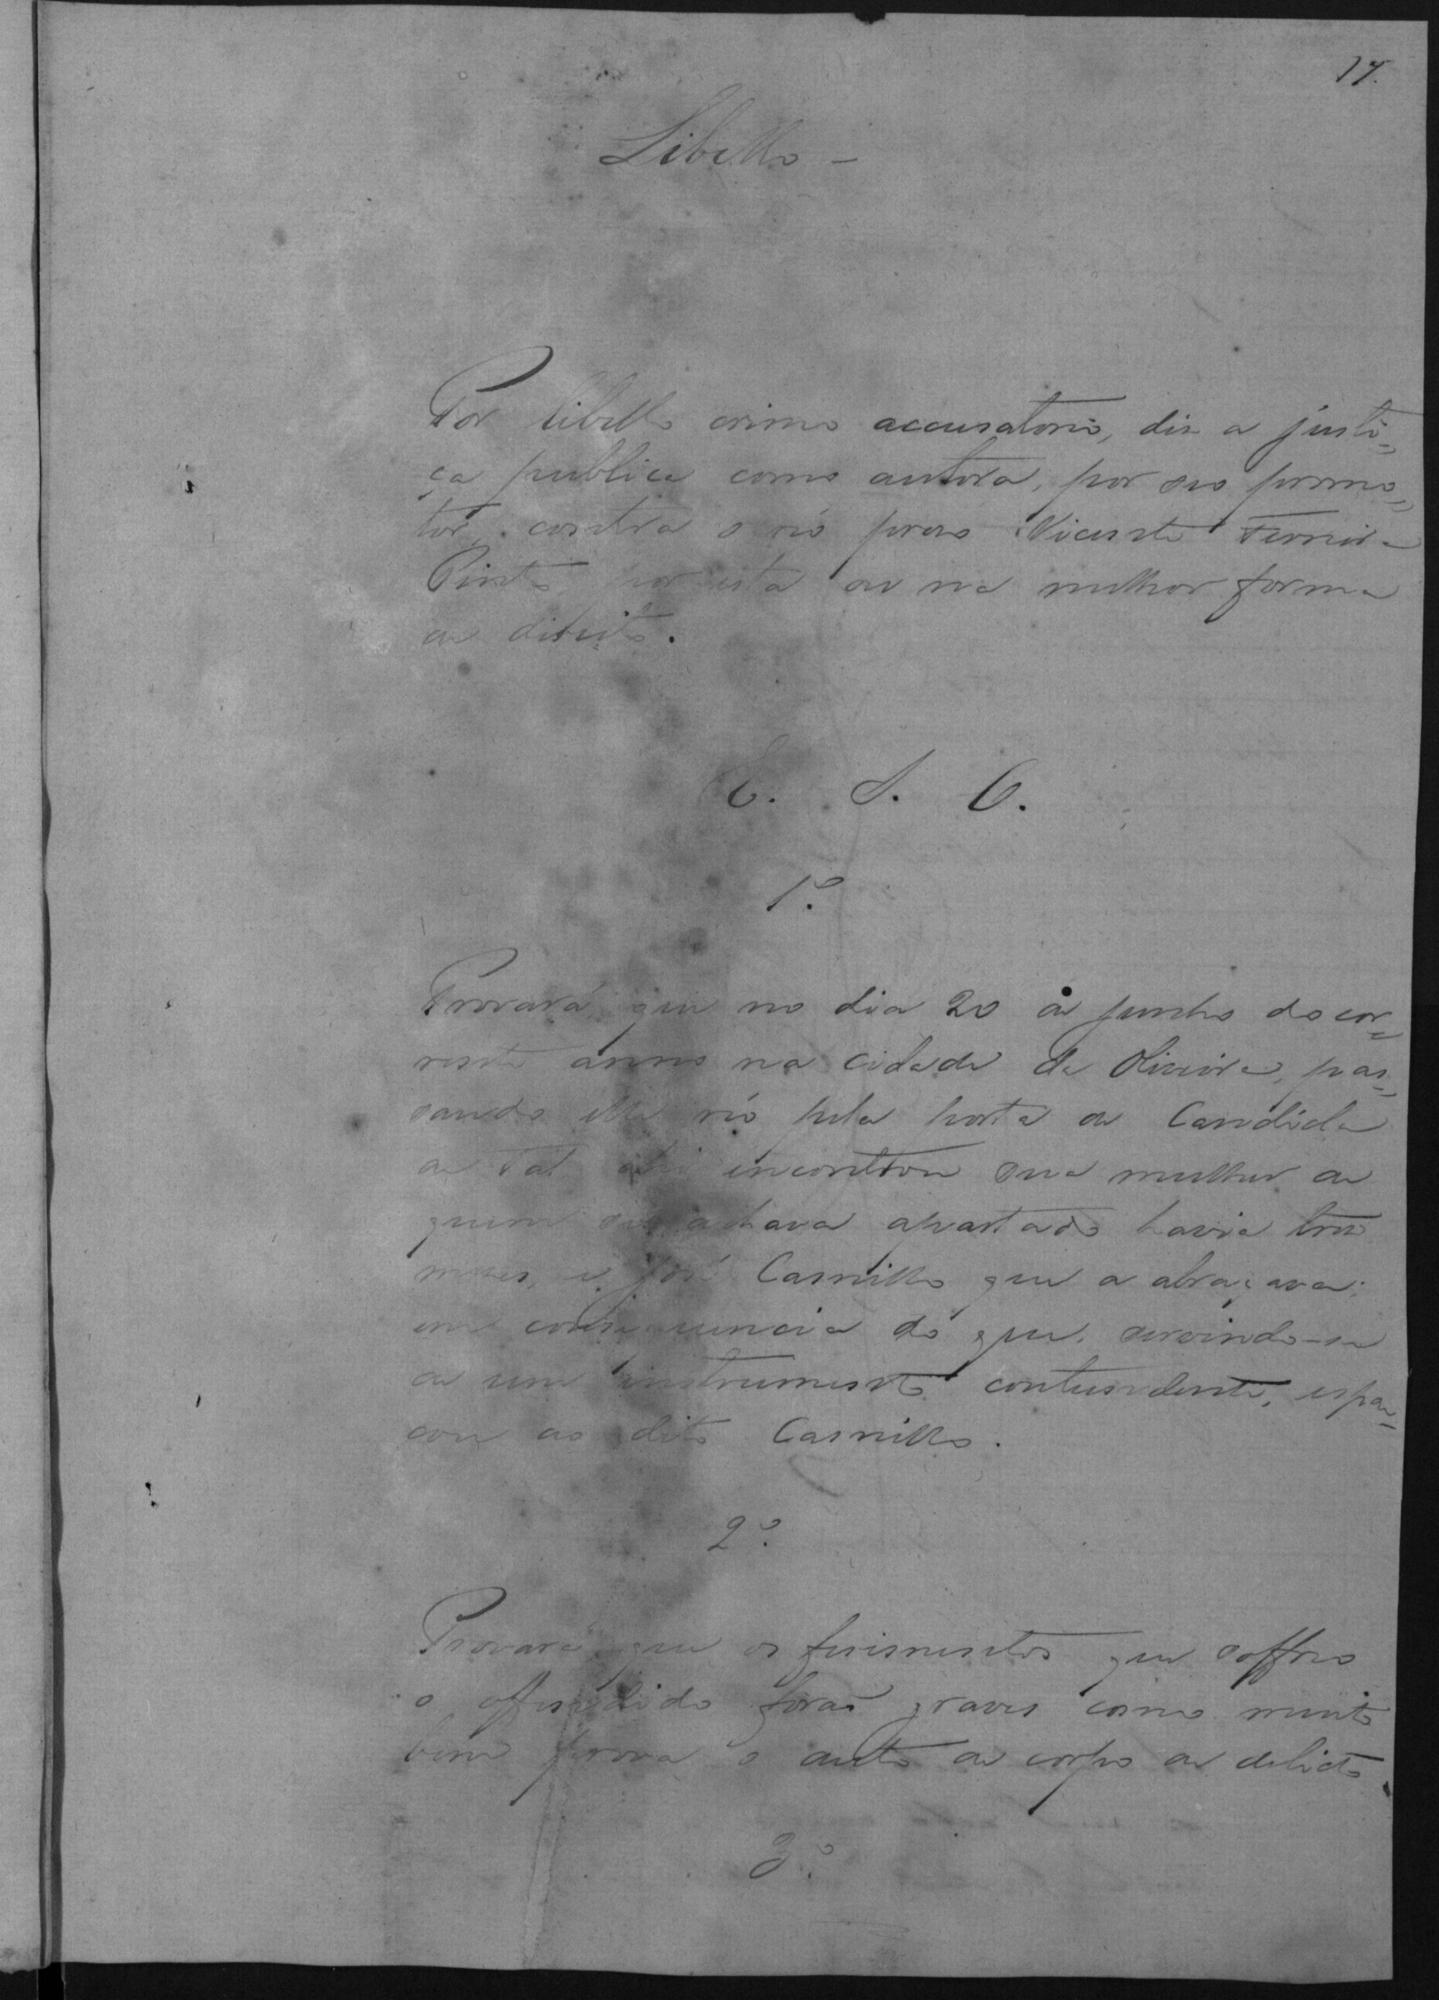 17.
Libello –
Por libello crime accusatorio, diz a justi-
ça publica como autora, por seo promo-
tor, contra o réo preso Vicente Ferreira
Pinto por esta ou na melhor forma
de direito.
E. S. C.
1º.
Provará que no dia 20 de junho do cor-
rente anno na cidade de Oliveira, pas-
sando elle réo pela porta de Candida
de tal ahi encontrou sua mulher de
quem se achava apartado havia tres
mezes, e José Camillo que a abraçava;
em consequencia do que, servindo-se
de um instrumento contundente, espan-
cou ao dito Camillo.
2º.
Provará que os ferimentos que soffreo
o offendido forão graves como muito
bem prova o auto de corpo de delicto.
3º.